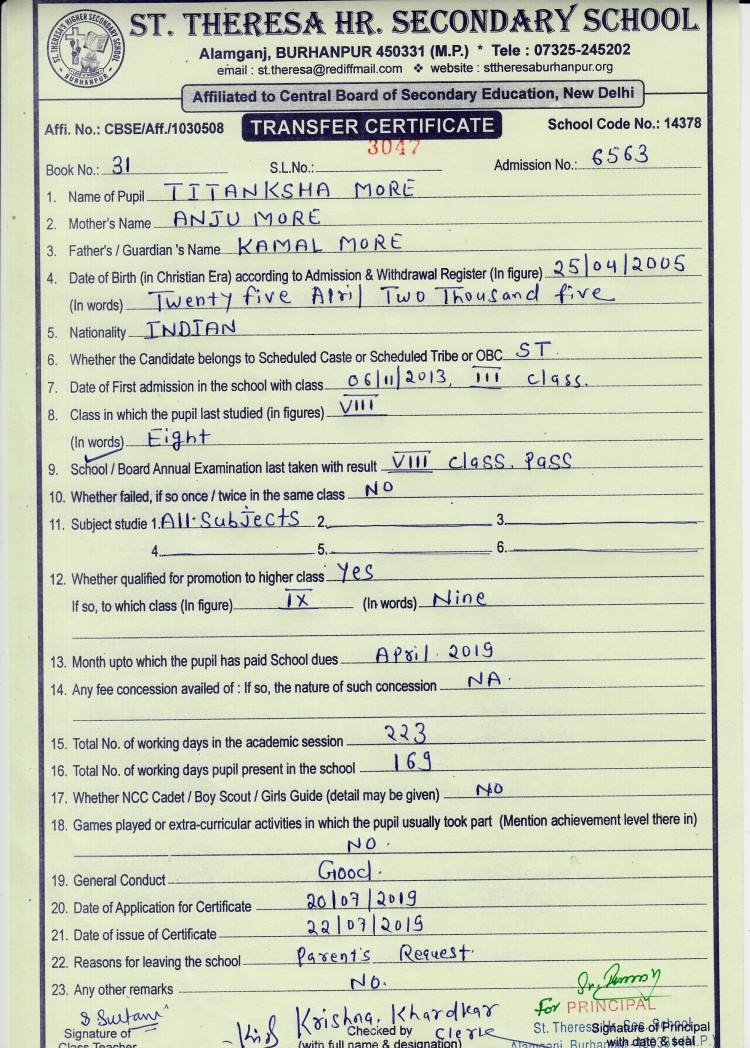 ST. THERESA'S HIGHER SECONDARY SCHOOL
BURHANPUR
ST. THERESA HR. SECONDARY SCHOOL
Alamganj, BURHANPUR 450331 (M.P.) * Tele : 07325-245202
email : st.theresa@rediffmail.com ❖ website : sttheresaburhanpur.org
Affiliated to Central Board of Secondary Education, New Delhi
Affi. No.: CBSE/Aff./1030508 TRANSFER CERTIFICATE School Code No.: 14378
Book No.: 31 S.L.No.: 3047 Admission No.: 6563
1. Name of Pupil TITANKSHA MORE
2. Mother's Name ANJU MORE
3. Father's / Guardian 's Name KAMAL MORE
4. Date of Birth (in Christian Era) according to Admission & Withdrawal Register (In figure) 25/04/2005
(In words) Twenty five April Two Thousand five
5. Nationality INDIAN
6. Whether the Candidate belongs to Scheduled Caste or Scheduled Tribe or OBC ST
7. Date of First admission in the school with class 06/11/2013, III class.
8. Class in which the pupil last studied (in figures) VIII
(In words) Eight
9. School / Board Annual Examination last taken with result VIII class. Pass
10. Whether failed, if so once / twice in the same class NO
11. Subject studie 1. All Subjects 2. 3.
4. 5. 6.
12. Whether qualified for promotion to higher class Yes
If so, to which class (In figure) IX (In words) Nine
13. Month upto which the pupil has paid School dues April. 2019
14. Any fee concession availed of : If so, the nature of such concession NA.
15. Total No. of working days in the academic session 223
16. Total No. of working days pupil present in the school 169
17. Whether NCC Cadet / Boy Scout / Girls Guide (detail may be given) NO
18. Games played or extra-curricular activities in which the pupil usually took part (Mention achievement level there in)
NO.
19. General Conduct Good.
20. Date of Application for Certificate 20/07/2019
21. Date of issue of Certificate 22/07/2019
22. Reasons for leaving the school Parent's Request.
23. Any other remarks NO.
For PRINCIPAL
Krishna. Khardkar
Signature of Checked by Clerk St. Theresa Hr. Sec. School Signature of Principal
Class Teacher (with full name & designation) Alamganj, Burhanpur with date & seal